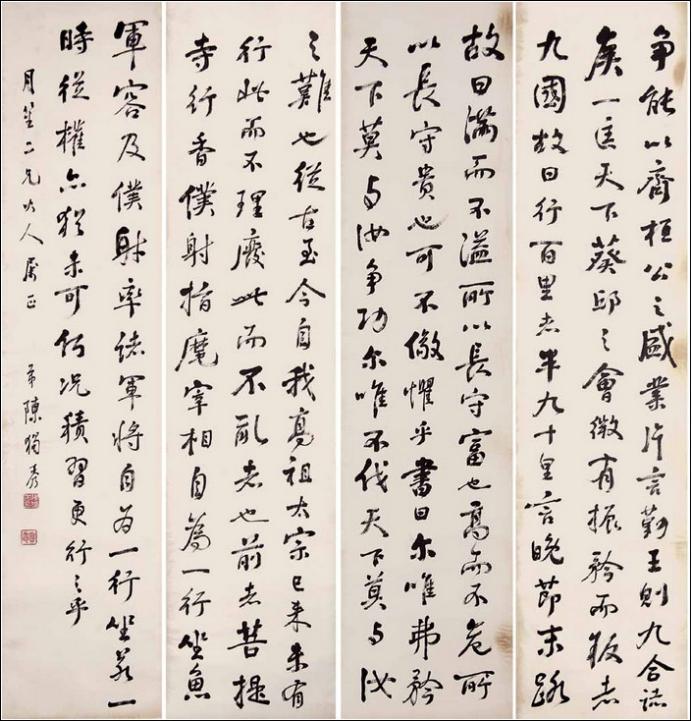 争能以齊桓公之盛業片言勤王則九合諸
矦一匡天下葵邱之會微有振矜而叛者
九國故曰行百里者半九十里言晚節末路
故曰滿而不溢所以長守富也高而不危所
以長守貴也可不儆懼乎書曰尔唯弗矜
天下莫与汝争功尔唯不伐天下莫与汝
之難也從古至今自我高祖太宗已来未有
行此而不理廢此而不亂者也前者菩提
寺行香僕射指麾宰相自為一行坐魚
軍容及僕射率諸軍將自为一行坐若一
時從權亦猶未可何況積習更行之乎
月笙二兄大人屬正 弟陳獨秀